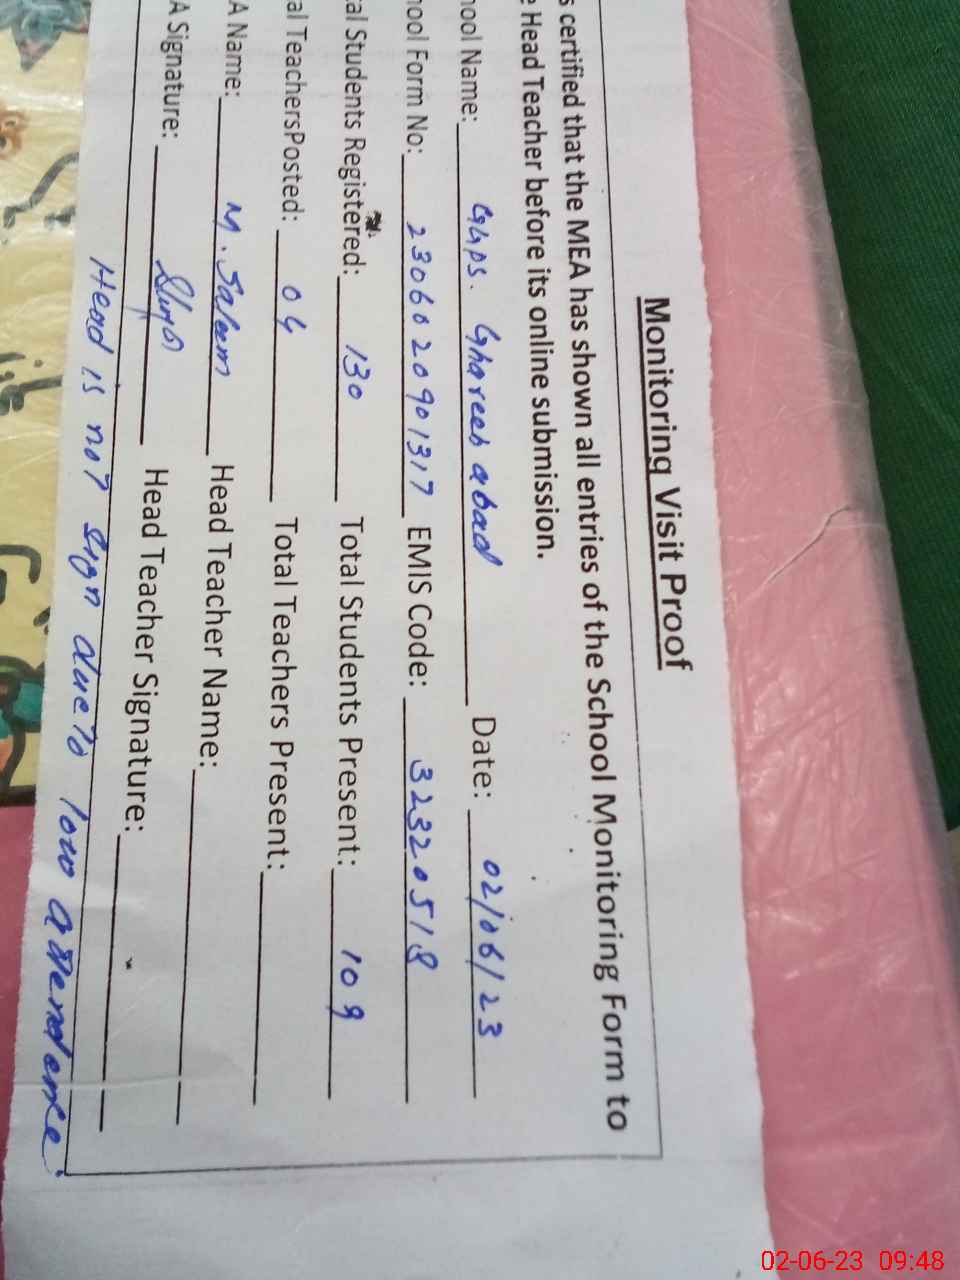 Monitoring Visit Proof
s certified that the MEA has shown all entries of the School Monitoring Form to
e Head Teacher before its online submission.
hool Name: GGPS. Ghareeb abad Date: 02/06/23
hool Form No: 2306020901317 EMIS Code: 32320518
al Students Registered: 130 Total Students Present: 109
al TeachersPosted: 04 Total Teachers Present:
A Name: M. Saleem Head Teacher Name:
A Signature: Head Teacher Signature:
Head is not sign due to low attendance
02-06-23 09:48